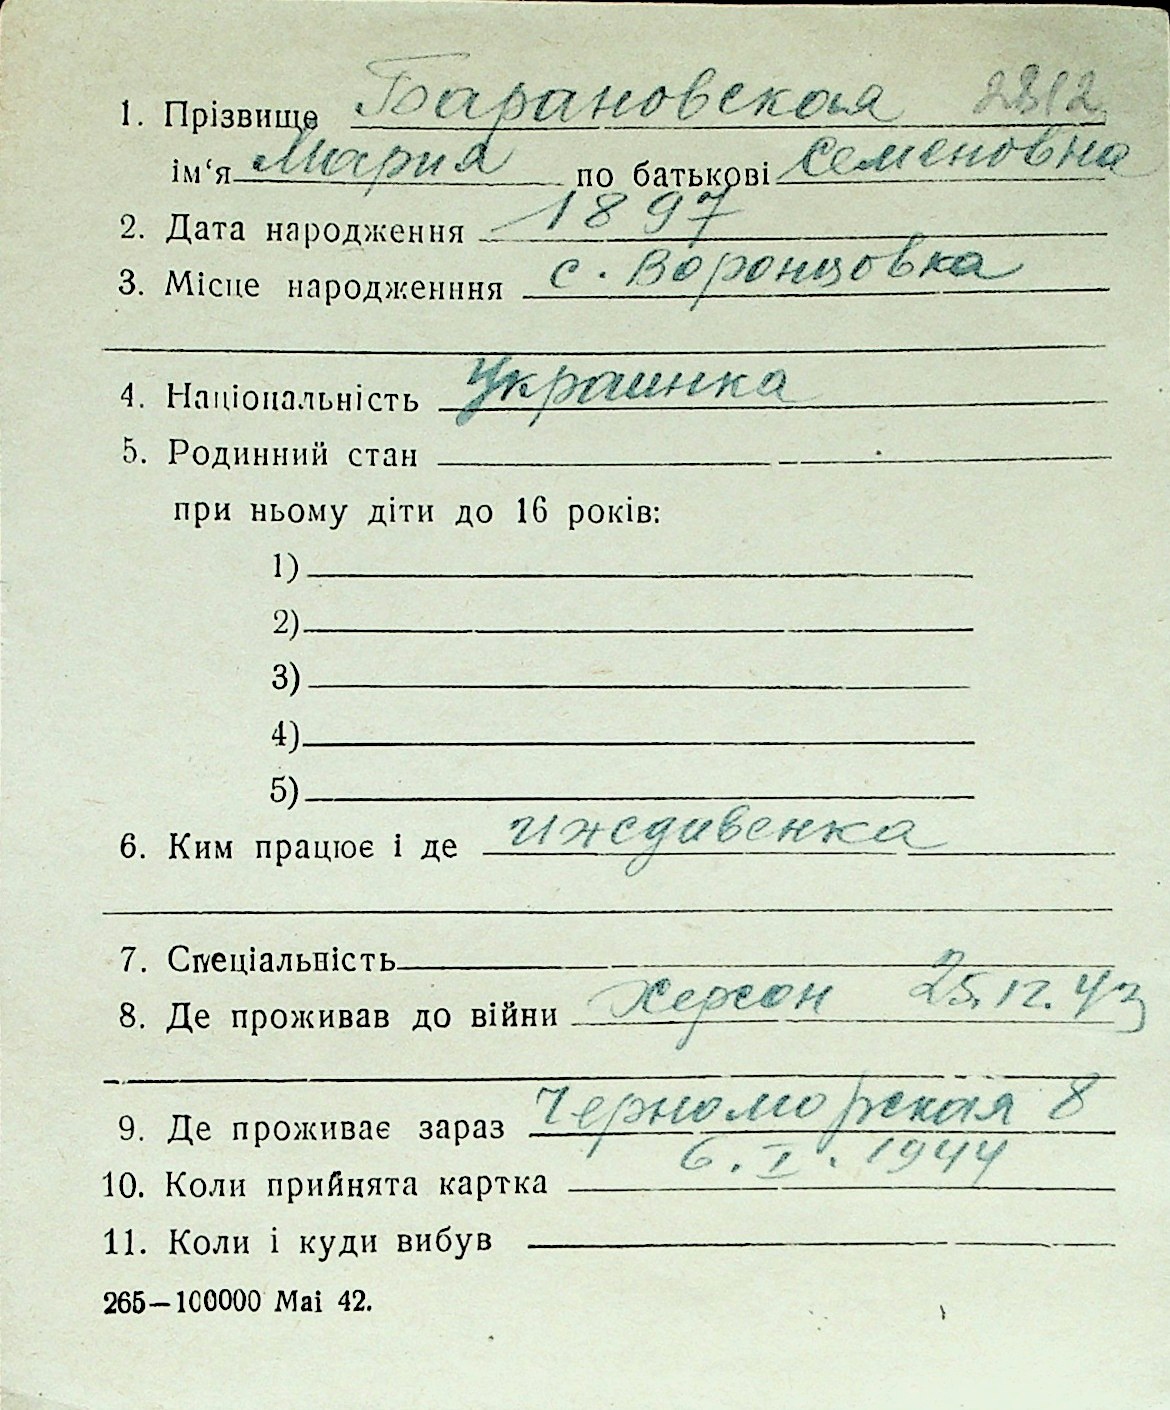 1. Прізвище Барановская 2312
ім‘я Мария по батькові Семеновна
2. Дата народження 1897
3. Місце народженння с. Воронцовка
4. Національність Украинка
5. Родинний стан
при ньому діти до 16 років:
1)
2)
3)
4)
5)
6. Ким працює і де иждивенка
7. Спеціальність
8. Де проживав до війни Херсон 25.12.43
9. Де проживає зараз Черноморская 8
10. Коли прийнята картка 6.I.1944
11. Коли і куди вибув
265—100000 Mai 42.